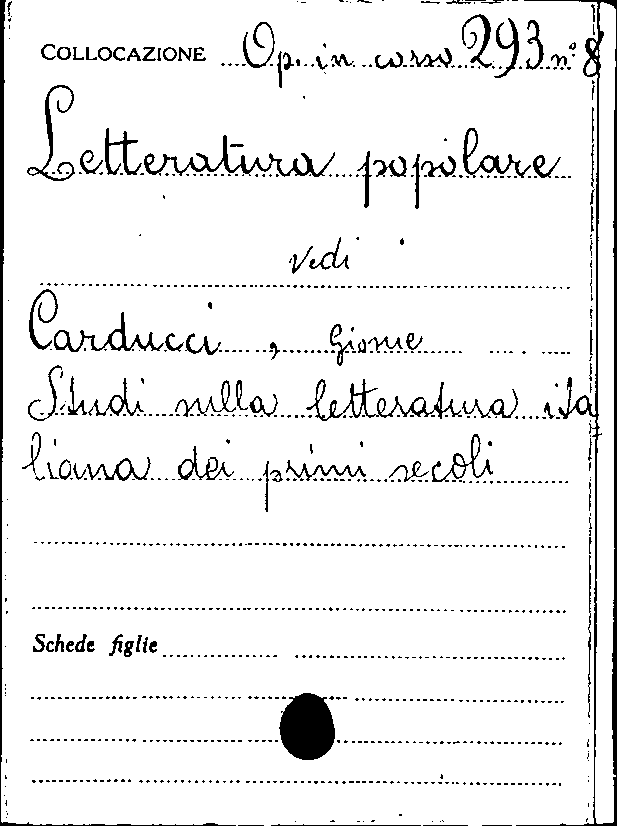 COLLOCAZIONE Op. in corso 293 n° 8
Letteratura popolare
vedi
Carducci, Giosue
Studi sulla letteratura ita
liana dei primi secoli
Schede figlie